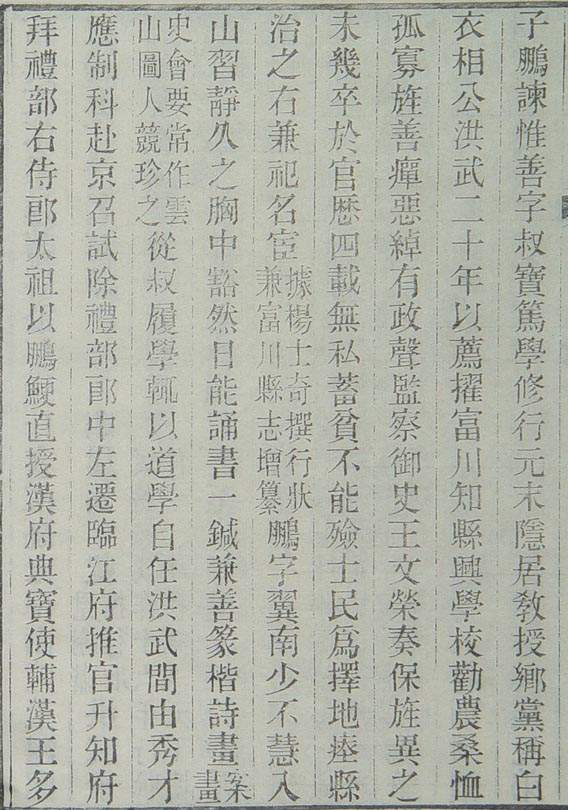 子鵬諫惟善字叔寶篤學修行元末隱居敎授鄉黨稱白
衣相公洪武二十年以薦擢富川知縣興學校勸農桑恤
孤寡旌善癉惡綽有政聲監察御史王文榮奏保旌異之
未幾卒於官歴四載無私蓄貧不能殮士民爲擇地瘞縣
治之右兼祀名宦據楊士奇撰行狀兼富川縣志增纂鵬字翼南少不慧入
山習靜久之胸中豁然日能誦書一鍼兼善篆楷詩畫案畫
史會要常作雲山圖人競珍之從叔履學輒以道學自任洪武間由秀才
應制科赴京召試除禮部郎中左遷臨江府推官升知府
拜禮部右侍郎太祖以鵬鯁直授漢府典寶使輔漢王多